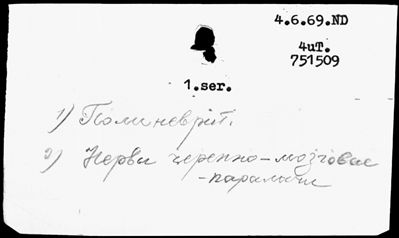 4.6.69.ND
4uT.
751509
1.ser.
1) Полиневрит.
2) Нервы черепно-мозговые
-параличи